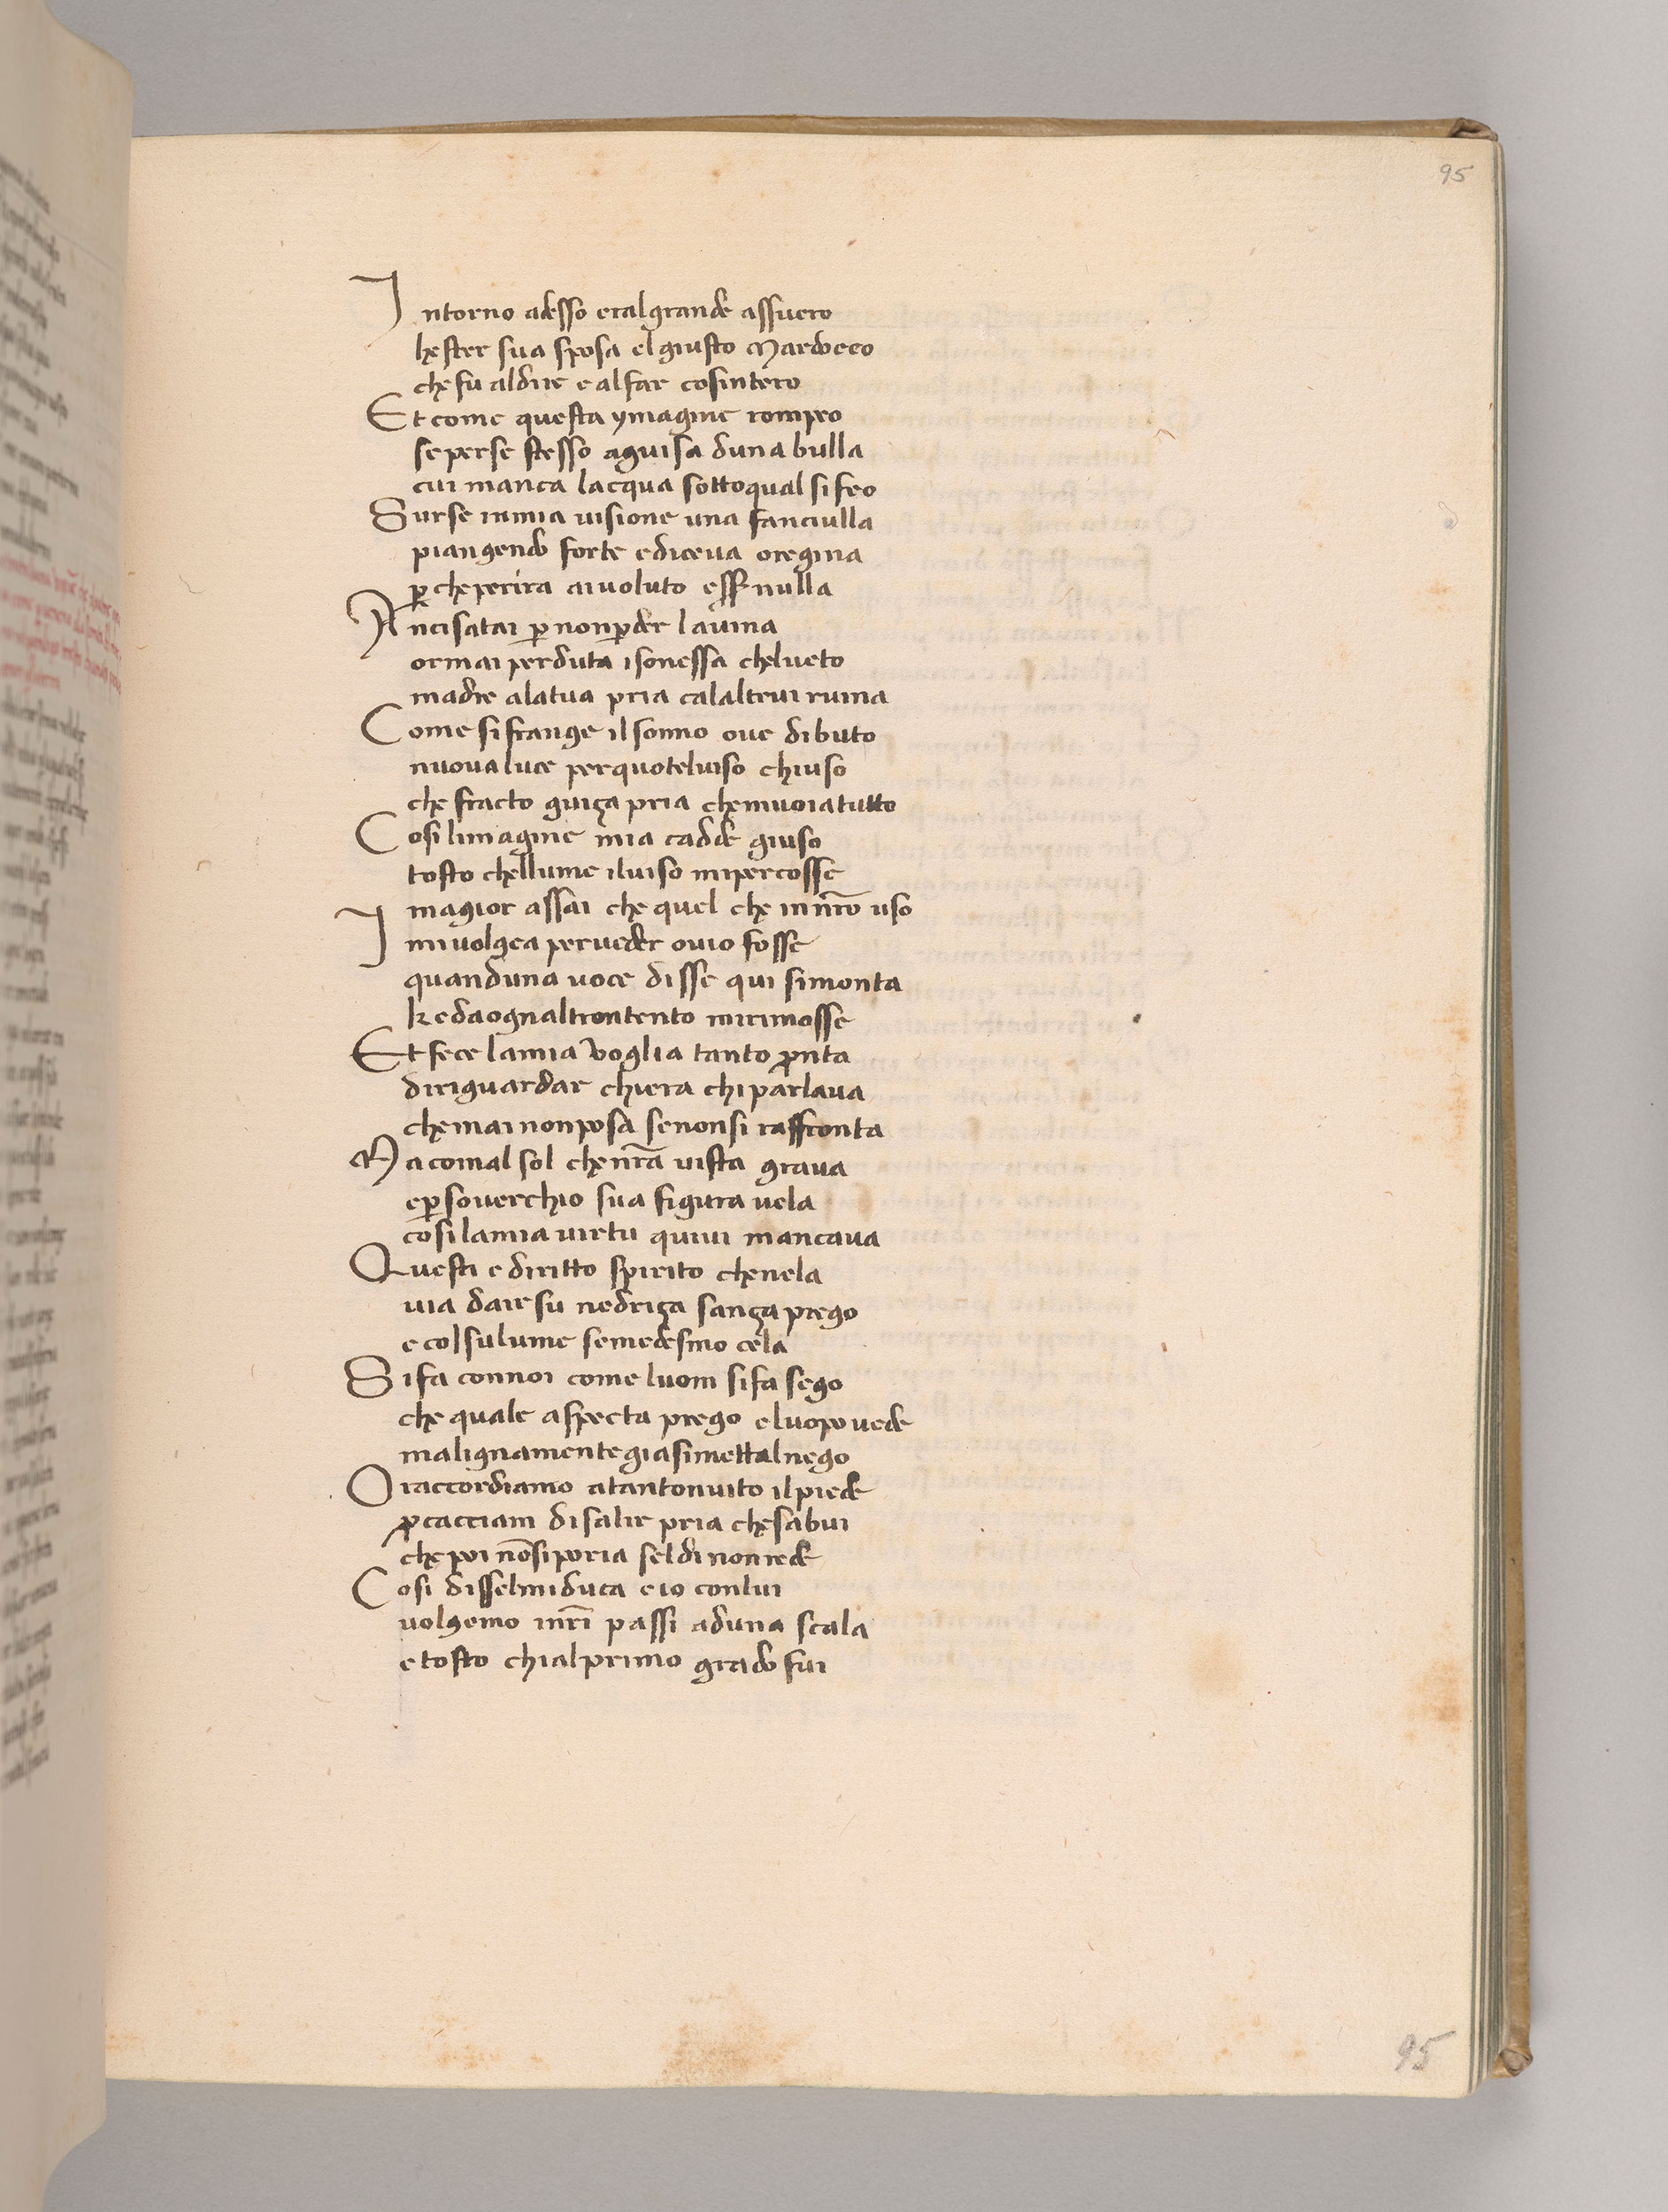 95
Intorno adesso eralgrande assuero
hester sua sposa elgiusto Mardoceo
che fu aldire e alfar cosintero
Et come questa ymagine rompeo
se perse stesso aguisa duna bulla
cui manca lacqua sottoqual si feo
Surse inmia uisione una fanciulla
piangendo forte ediceua oregina
ꝑche perira aiuoluto esser nulla
Ancisatai ꝑ nonꝑder lauina
ormai perduta isonessa chelueto
madre alatua pria calaltrui ruina
Come si frange il sonno oue dibuto
nuoua luce perquoteluiso chiuso
che fracto guiça pria chemuoia tutto
Cosi limagine mia cadde giuso
tosto chellume iluiso mipercosse
magior assai che quel che innr̃o uso
I miuolgea perueder ouio fosse
quanduna uoce disse qui simonta
ke daognaltrontento mirimosse
Et fece lamia voglia tanto ꝓnta
diriguardar chiera chi parlaua
che mai nonposa senonsi raffronta
Ma comal sol che nr̃a uista graua
eꝑ souerchio sua figura uela
cosi lamia uirtu quiui mancaua
Questi e diritto spirito chenela
uia dairsu nedriça sança prego
e col sulume semedesmo cela
Sifa connoi come luom sifa sego
che quale aspecta prego eluopo uede
malignamente gia simettalnego
Oraccordiamo atantonuito ilpiede
ꝓcacciam disalir pria chesabui
che poi nõsiporia seldi nonriede
Cosi disselmiduca eio conlui
uolgemo inr̃i passi aduna scala
e tosto chialprimo grado fui
95